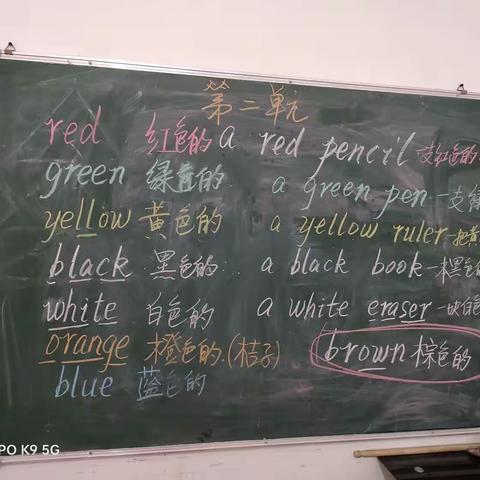 第二单元
red 红色的 a red pencil 一支红色的
green 绿色的 a green pen 一支
yellow 黄色的 a yellow ruler 一把黄
black 黑色的 a black book 一本黑色
white 白色的 a white eraser 一块白色
orange 橙色的.(桔子) brown 棕色的
blue 蓝色的
PO K9 5G